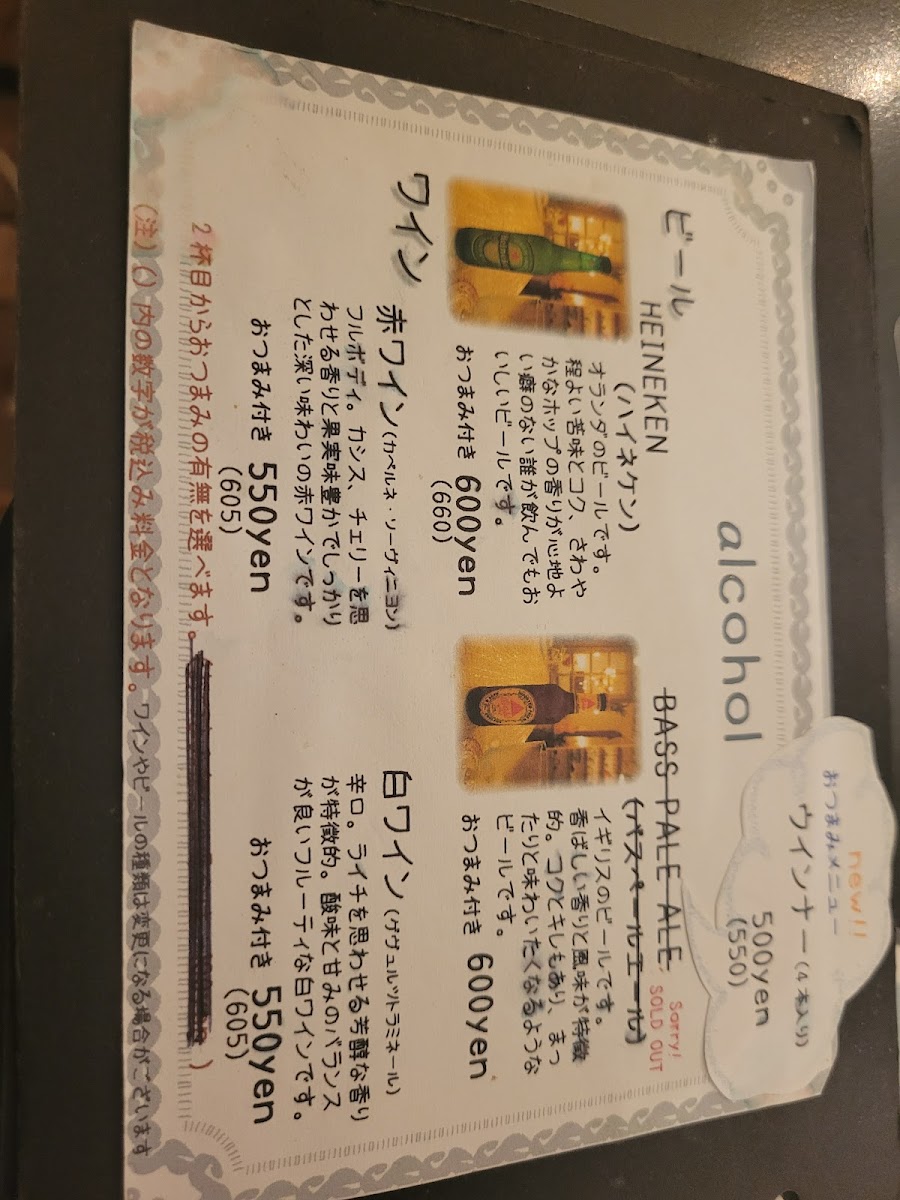 alcohol
new!!
おつまみメニュー
ウインナー(4本入り)
500yen
(550)
ビール
HEINEKEN
(ハイネケン)
オランダのビールです。
程よい苦味とコク、さわや
かなホップの香りが心地よ
い癖のない誰が飲んでもお
いしいビールです。
おつまみ付き 600yen
(660)
BASS PALE ALE
(バスペールエール)
Sorry!
SOLD OUT
イギリスのビールです。
香ばしい香りと風味が特徴
的。コクとキレもあり、まっ
たりと味わいたくなるような
ビールです。
おつまみ付き 600yen
ワイン
赤ワイン(カベルネ・ソーヴィニヨン)
フルボディ。カシス、チェリーを思
わせる香りと果実味豊かでしっかり
とした深い味わいの赤ワインです。
おつまみ付き 550yen
(605)
白ワイン(ゲヴュルツトラミネール)
辛口。ライチを思わせる芳醇な香り
が特徴的。酸味と甘みのバランス
が良いフルーティな白ワインです。
おつまみ付き 550yen
(605)
2杯目からおつまみの有無を選べます。
)
(注)()内の数字が税込み料金となります。ワインやビールの種類は変更になる場合がございます